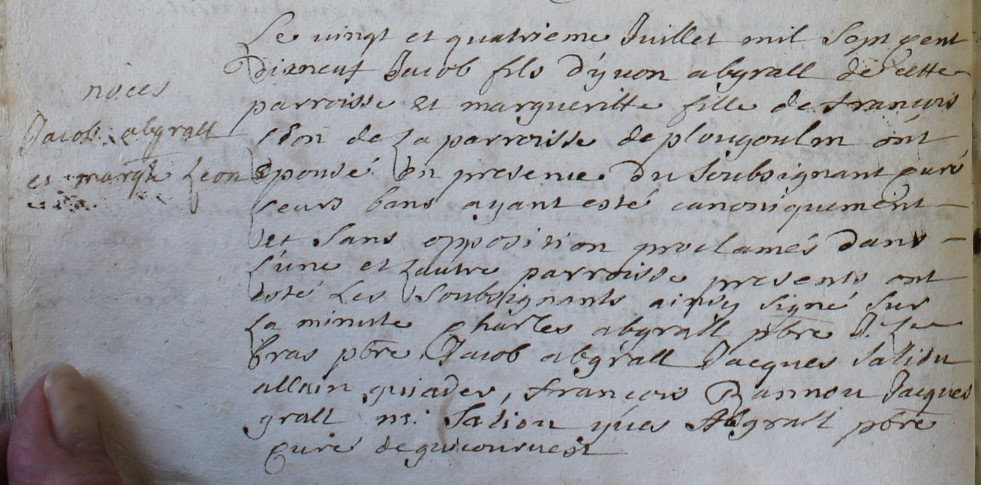 noces
Jacob abgrall
et marg^te Leon
Le vingt et quatrieme Juillet mil sept cent
dixneuf Jacob fils d'yvon abgrall de cette
parroisse et margueritte fille de francois
Leon de La parroisse de plougoulm ont
epousé en presence du soubsignant curé
leurs bans ayant esté canoniquement
et sans opposition proclamés dans
l'une et l'autre parroisse presents ont
esté Les soubsignants ainsy signé sur
La minute charles abgrall pbre J: Le
bras pbre Jacob abgrall Jacques Saliou
allain, francois Jacques
grall Saliou yves Abgrall pbre
curé de